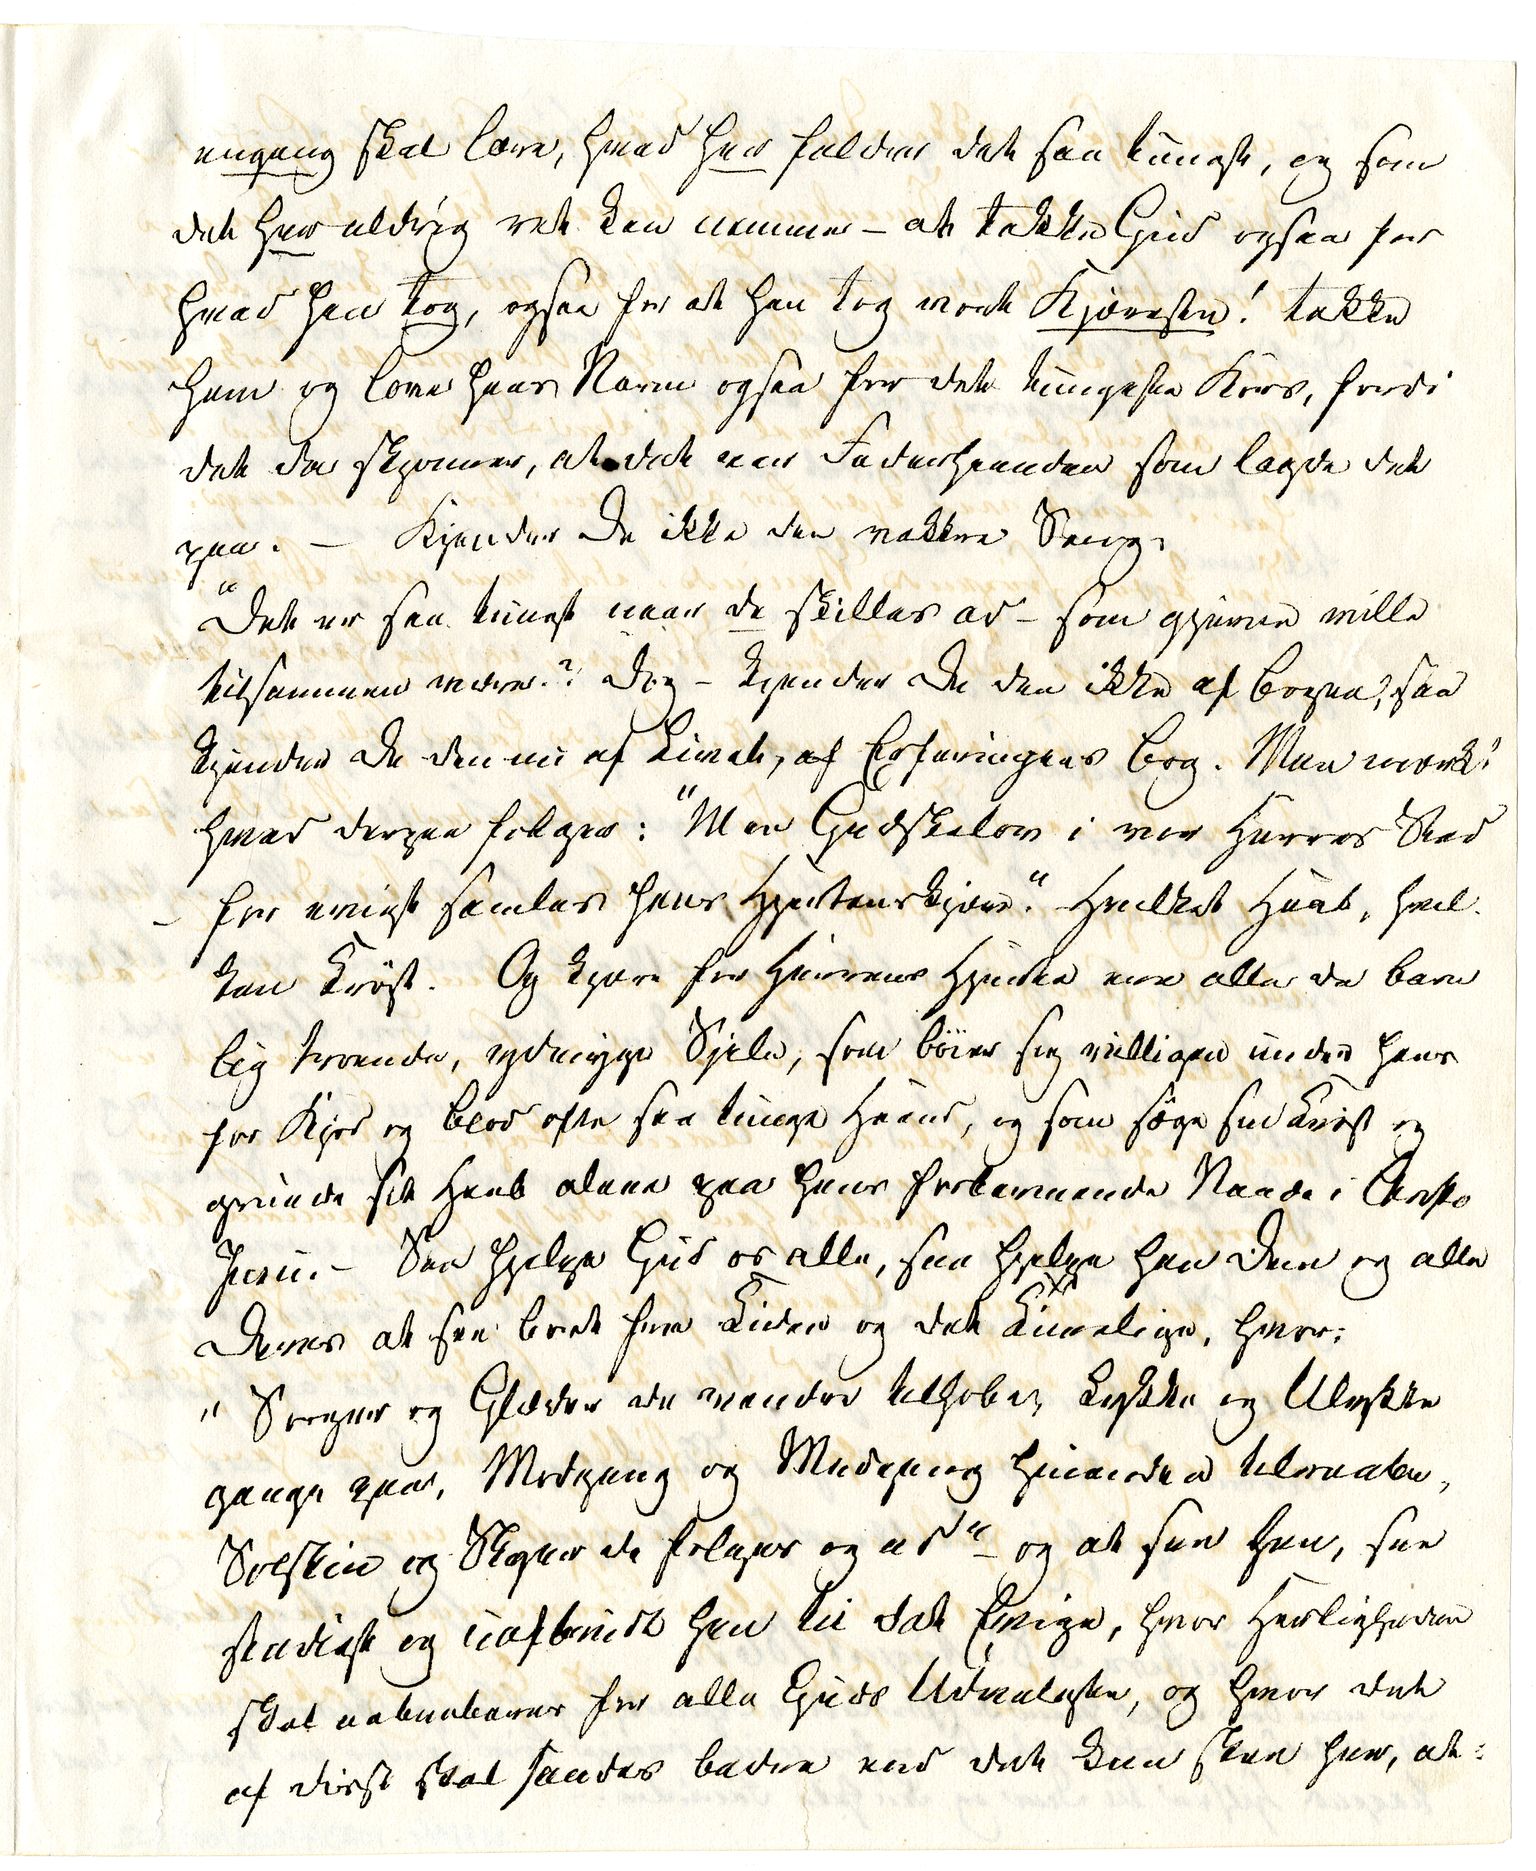 engang skal lære, hvad her falder det saa tungt, og som
det her aldrig ret kan nemme – at takke Gud ogsaa for
hvad han tog, ogsaa for at han tog vort Kjæreste! takke
ham og love hans Navn ogsaa for det tungeste Kors, fordi
det da skjønner, at det var Faderhaanden som lagde det
paa. – Kjender De ikke den vakkre Sang:
"Det er saa tungt naar de skilles ad – som gjerne ville
tilsammen være"? Dog – kjender De den ikke af Bogen, saa
kjender De den nu af Livet, af Erfaringens Bog. Men mærk!
hvad derpaa følger: "Men Gudskelov i vor Herres Stad
– for evigt samles hans Hjertenskjære." Hvilket Haab, hvil-
ken Trøst. Og kjære for Herrens Hjerte ere alle de barn
lig troende, ydmyge Sjele, som böier sig villigen under hans
for Kjød og Blod ofte saa tunge Haand, og som søge sin Trøst og
grunde sit Haab alene paa hans forbarmende Naade i Christo
Jesu. – Saa hjelpe Gud os alle, saa hjelpe han Dem og alle
Deres at see bort fra Tiden og det Timelige, hvor:
"Sorger og Glæder de vandre tilhobe, Lykke og Ulykke
gange paa Rad, Medgang og Modgang hinanden tilraabe,
Solskin og Skyer de følges og ad" – og at see hen, see
stadigt og uafbrudt hen til det Evige, hvor Herligheden
skal aabenbares for alle Guds Udvalgte, og hvor det
af skal sandes bedre end det kan skee her, at: